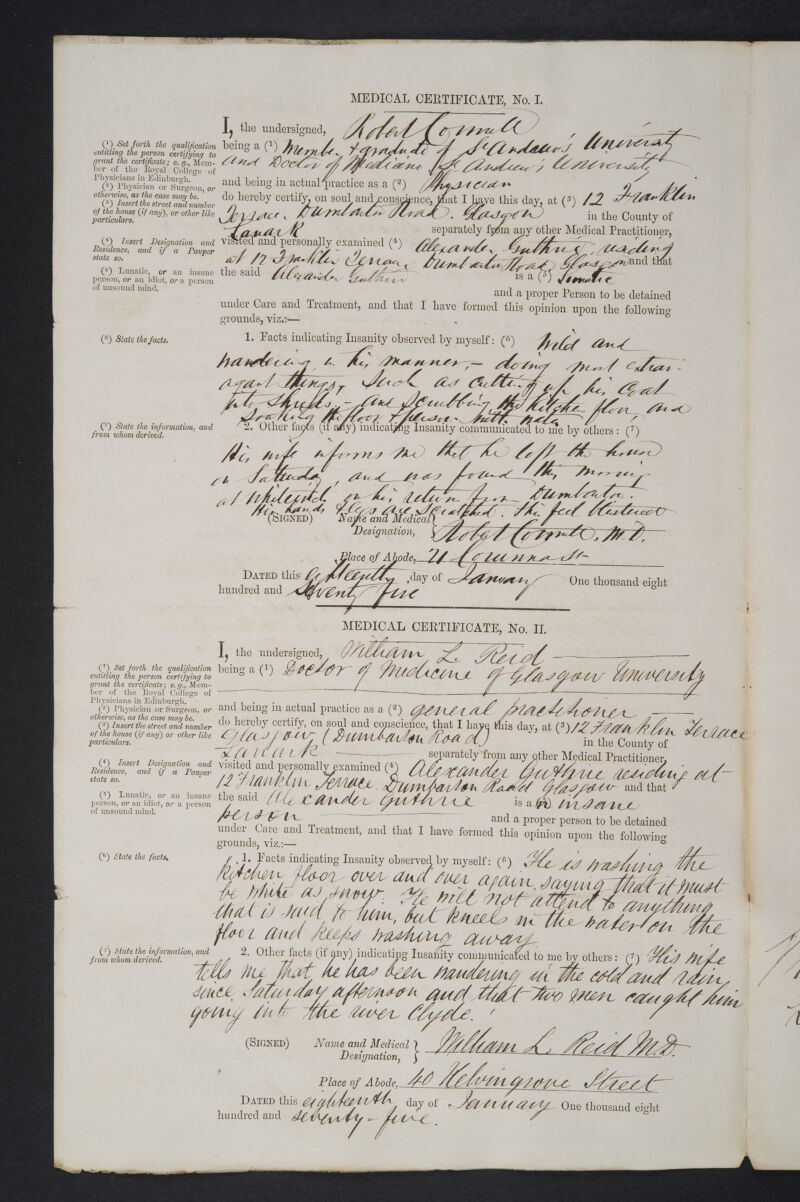 MEDICAL CERTIFICATE, No. I.
I, the undersigned, Robert
being a (1) Member & graduate of St Andrew's University
and Doctor of Medicine St Andrew's University
and being in actual practice as a (2) Physician
do hereby certify, on soul and conscience, that I have this day, at (3) 12 Franklin
Terrace, Dumbarton Road. Glasgow in the County of
Lanark separately from any other Medical Practitioner,
visited and personally examined (4) Alexander Guthrie, residing
at 12 Franklin Terrace Dumbarton Road Glasgow and that
the said Alexander Guthrie is a (5) Lunatic
and a proper Person to be detained
under Care and Treatment, and that I have formed this opinion upon the following
grounds, viz.:—
(1) Set forth the qualification
entitling the person certifying to
grant the certificate; e. g., Mem-
ber of the Royal College of
Physicians in Edinburgh.
(2) Physician or Surgeon, or
otherwise, as the case may be.
(3) Insert the street and number
of the house (if any), or other like
particulars.
(4) Insert Designation and
Residence, and if a Pauper
state so.
(5) Lunatic, or an insane
person, or an idiot, or a person
of unsound mind.
(6) State the facts.
1. Facts indicating Insanity observed by myself: (6) Wild and
wandering in his manner, – doing most extrav-
agant things, such as cutting up his coat
into shreds, – and scrubbing the kitchen floor, and
soaking the floor & person with water
(7) State the information, and
from whom derived.
2. Other facts (if any) indicating Insanity communicated to me by others: (7)
His wife informs me that he left the house
on Saturday, and was found this morning
at on his return from Dumbarton.
His hands & legs are scratched. The feet
(SIGNED) Name and Medical
Designation, Robert M.D.
Place of Abode, 21 Corunna St
DATED this eighteenth day of January One thousand eight
hundred and Seventy five
MEDICAL CERTIFICATE, No. II.
I, the undersigned, William L. Reid
being a (1) Doctor of Medicine of Glasgow University
and being in actual practice as a (2) general practitioner
do hereby certify, on soul and conscience, that I have this day, at (3) 12 Franklin Terrace
Glasgow (Dumbarton Road) in the County of
Lanark separately from any other Medical Practitioner,
visited and personally examined (4) Alexander Guthrie residing at
12 Franklin Terrace Dumbarton Road Glasgow and that
the said Alexander Guthrie is a (5) n insane
person and a proper person to be detained
under Care and Treatment, and that I have formed this opinion upon the following
grounds, viz.:—
(1) Set forth the qualification
entitling the person certifying to
grant the certificate; e.g., Mem-
ber of the Royal College of
Physicians in Edinburgh.
(2) Physician or Surgeon, or
otherwise, as the case may be.
(3) Insert the street and number
of the house (if any) or other like
particulars.
(4) Insert Designation and
Residence, and if a Pauper
state so.
(5) Lunatic, or an insane
person, or an idiot, or a person
of unsound mind.
(6) State the facts.
1. Facts indicating Insanity observed by myself: (6) He is washing the
kitchen floor over and over again, saying that it must
be white as snow. He will not attend to anything
that is said to him, but kneels in the water on the
floor and keeps washing away
(7) State the information, and
from whom derived.
2. Other facts (if any) indicating Insanity communicated to me by others: (7) His wife
tells me that he has been wandering in the cold and rain
since Saturday afternoon and that two men caught him
going into the river Clyde.
(SIGNED) Name and Medical
Designation, William L Reid M.D.
Place of Abode, 40 Kelvingrove Street
DATED this eighteenth day of January One thousand eight
hundred and seventy-five.